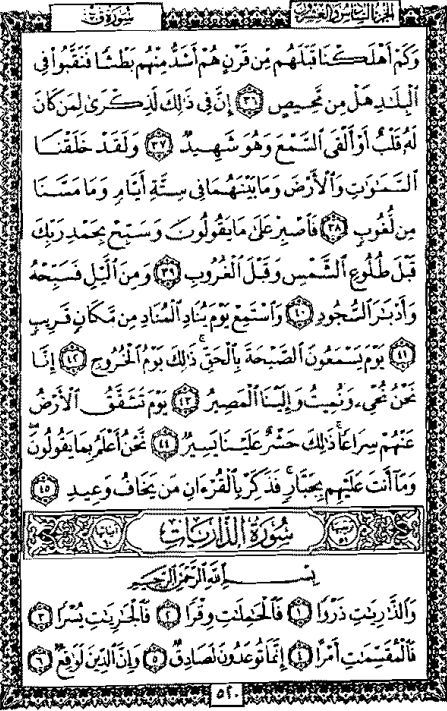 سورة ق الجزء السادس والعشرون
وَكَمْ أَهْلَكْنَا قَبْلَهُم مِّن قَرْنٍ هُمْ أَشَدُّ مِنْهُم بَطْشًا فَنَقَّبُوا۟ فِى
ٱلْبِلَـٰدِ هَلْ مِن مَّحِيصٍ ٣٦ إِنَّ فِى ذَٰلِكَ لَذِكْرَىٰ لِمَن كَانَ
لَهُۥ قَلْبٌ أَوْ أَلْقَى ٱلسَّمْعَ وَهُوَ شَهِيدٌ ٣٧ وَلَقَدْ خَلَقْنَا
ٱلسَّمَـٰوَٰتِ وَٱلْأَرْضَ وَمَا بَيْنَهُمَا فِى سِتَّةِ أَيَّامٍ وَمَا مَسَّنَا
مِن لُّغُوبٍ ٣٨ فَٱصْبِرْ عَلَىٰ مَا يَقُولُونَ وَسَبِّحْ بِحَمْدِ رَبِّكَ
قَبْلَ طُلُوعِ ٱلشَّمْسِ وَقَبْلَ ٱلْغُرُوبِ ٣٩ وَمِنَ ٱلَّيْلِ فَسَبِّحْهُ
وَأَدْبَـٰرَ ٱلسُّجُودِ ٤٠ وَٱسْتَمِعْ يَوْمَ يُنَادِ ٱلْمُنَادِ مِن مَّكَانٍ قَرِيبٍ
٤١ يَوْمَ يَسْمَعُونَ ٱلصَّيْحَةَ بِٱلْحَقِّ ۚ ذَٰلِكَ يَوْمُ ٱلْخُرُوجِ ٤٢ إِنَّا
نَحْنُ نُحْىِۦ وَنُمِيتُ وَإِلَيْنَا ٱلْمَصِيرُ ٤٣ يَوْمَ تَشَقَّقُ ٱلْأَرْضُ
عَنْهُمْ سِرَاعًا ۚ ذَٰلِكَ حَشْرٌ عَلَيْنَا يَسِيرٌ ٤٤ نَّحْنُ أَعْلَمُ بِمَا يَقُولُونَ ۖ
وَمَآ أَنتَ عَلَيْهِم بِجَبَّارٍ ۖ فَذَكِّرْ بِٱلْقُرْءَانِ مَن يَخَافُ وَعِيدِ ٤٥
سورة الذاريات
بِسْمِ ٱللَّهِ ٱلرَّحْمَـٰنِ ٱلرَّحِيمِ
وَٱلذَّٰرِيَـٰتِ ذَرْوًا ١ فَٱلْحَـٰمِلَـٰتِ وِقْرًا ٢ فَٱلْجَـٰرِيَـٰتِ يُسْرًا ٣
فَٱلْمُقَسِّمَـٰتِ أَمْرًا ٤ إِنَّمَا تُوعَدُونَ لَصَادِقٌ ٥ وَإِنَّ ٱلدِّينَ لَوَٰقِعٌ ٦
٥٢٠